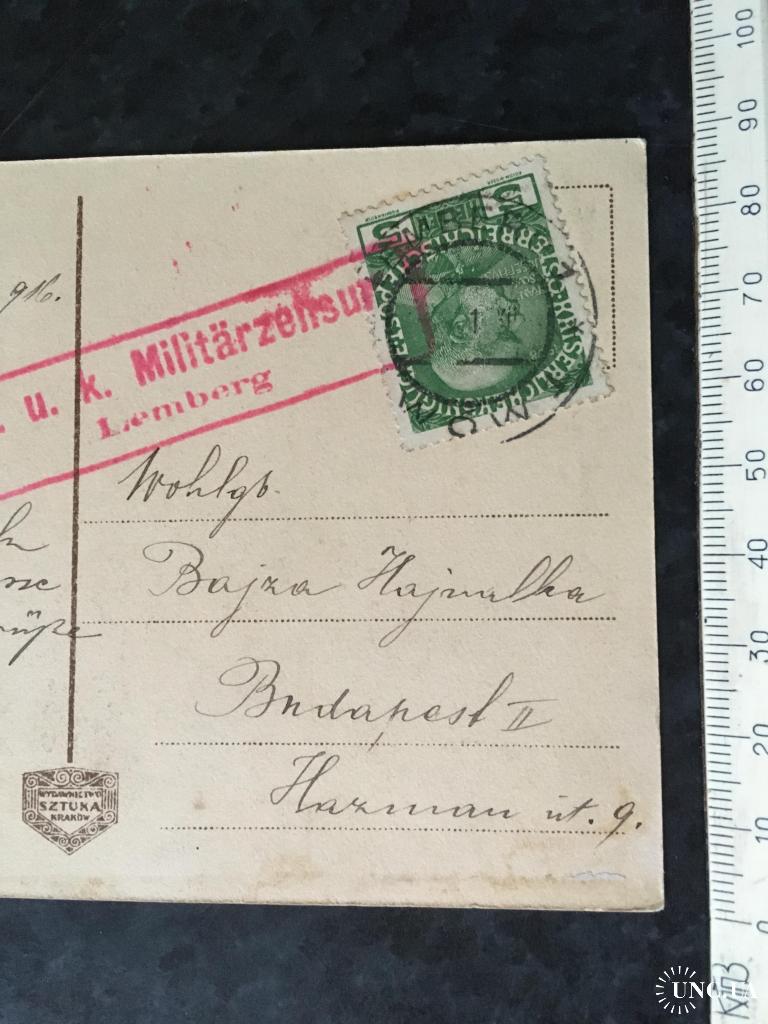 916.
u. k. Militärzensur
Lemberg
5 5
KAISERLICHE KÖNIGLICHE ÖSTERREICHISCHE POST
LEMBERG 1
Wohlgb.
Bajza Hajnalka
Budapest II
Hazman út. 9.
WYDAWNICTWO
SZTUKA
KRAKÓW
100
90
80
70
60
50
40
30
20
10
0
UNC.UA